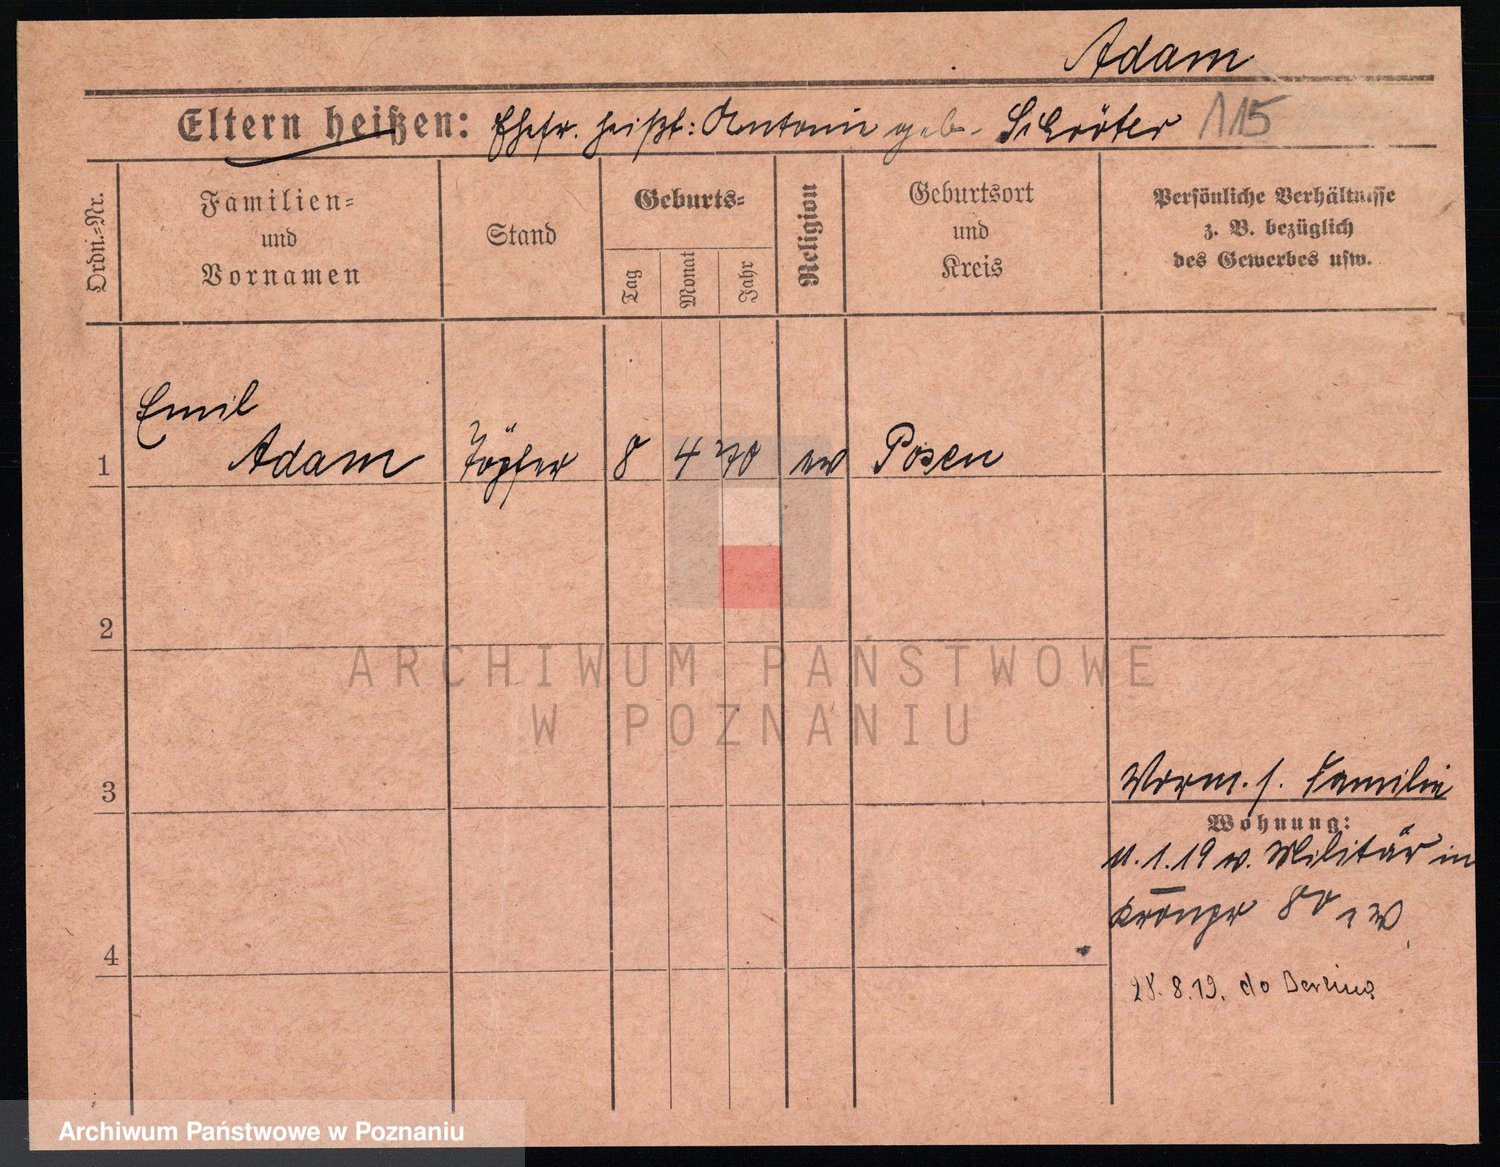 Adam
Eltern heißen: Ehefr. heißt: Antonie geb. Schröter 115
Ordn.=Nr.
Familien=
und
Vornamen
Stand
Geburts=
Tag
Monat
Jahr
Religion
Geburtsort
und
Kreis
Persönliche Verhältnisse
z. B. bezüglich
des Gewerbes usw.
Emil
1 Adam Töpfer 8 4 70 ev Posen
2
3
Vorm. s. Familie
Wohnung:
11.1.19 v. Militär in
80
4
28.8.19. do Berlina
ARCHIWUM PAŃSTWOWE
W POZNANIU
Archiwum Państwowe w Poznaniu